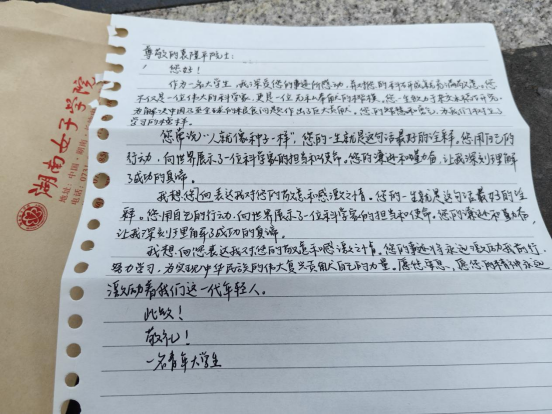 湖南女子学院
地址：中国·湖南
电话：0731
尊敬的袁隆平院士：
您好！
作为一名大学生，我深受您的事迹所感动，并对您的科研成就充满敬意。您
不仅是一位伟大的科学家，更是一位无私奉献的楷模。您一生致力于杂交水稻的研究，
为解决中国乃至全球的粮食问题作出了巨大贡献。您的
学习的榜样。
您常说“人就像种子一样”，您的一生就是这句话最好的诠释。您用自己的
行动，向世界展示了一位科学家的担当和使命。您的谦逊和勤奋，让我深刻理解
了成功的真谛。
我想您们向表达我对您的敬意和感激之情。您的一生就是这句话最好的诠
释。您用自己的行动，向世界展示了一位科学家的担当和使命。您的谦逊和勤奋，
让我深刻理解了成功的真谛。
我想向您表达我对您的敬意和感激之情。您的事迹将永远激励我前行，
努力学习，为实现中华民族的伟大复兴贡献自己的力量。愿您安息，愿您的精神永远
激励着我们这一代年轻人。
此致！
敬礼！
一名青年大学生